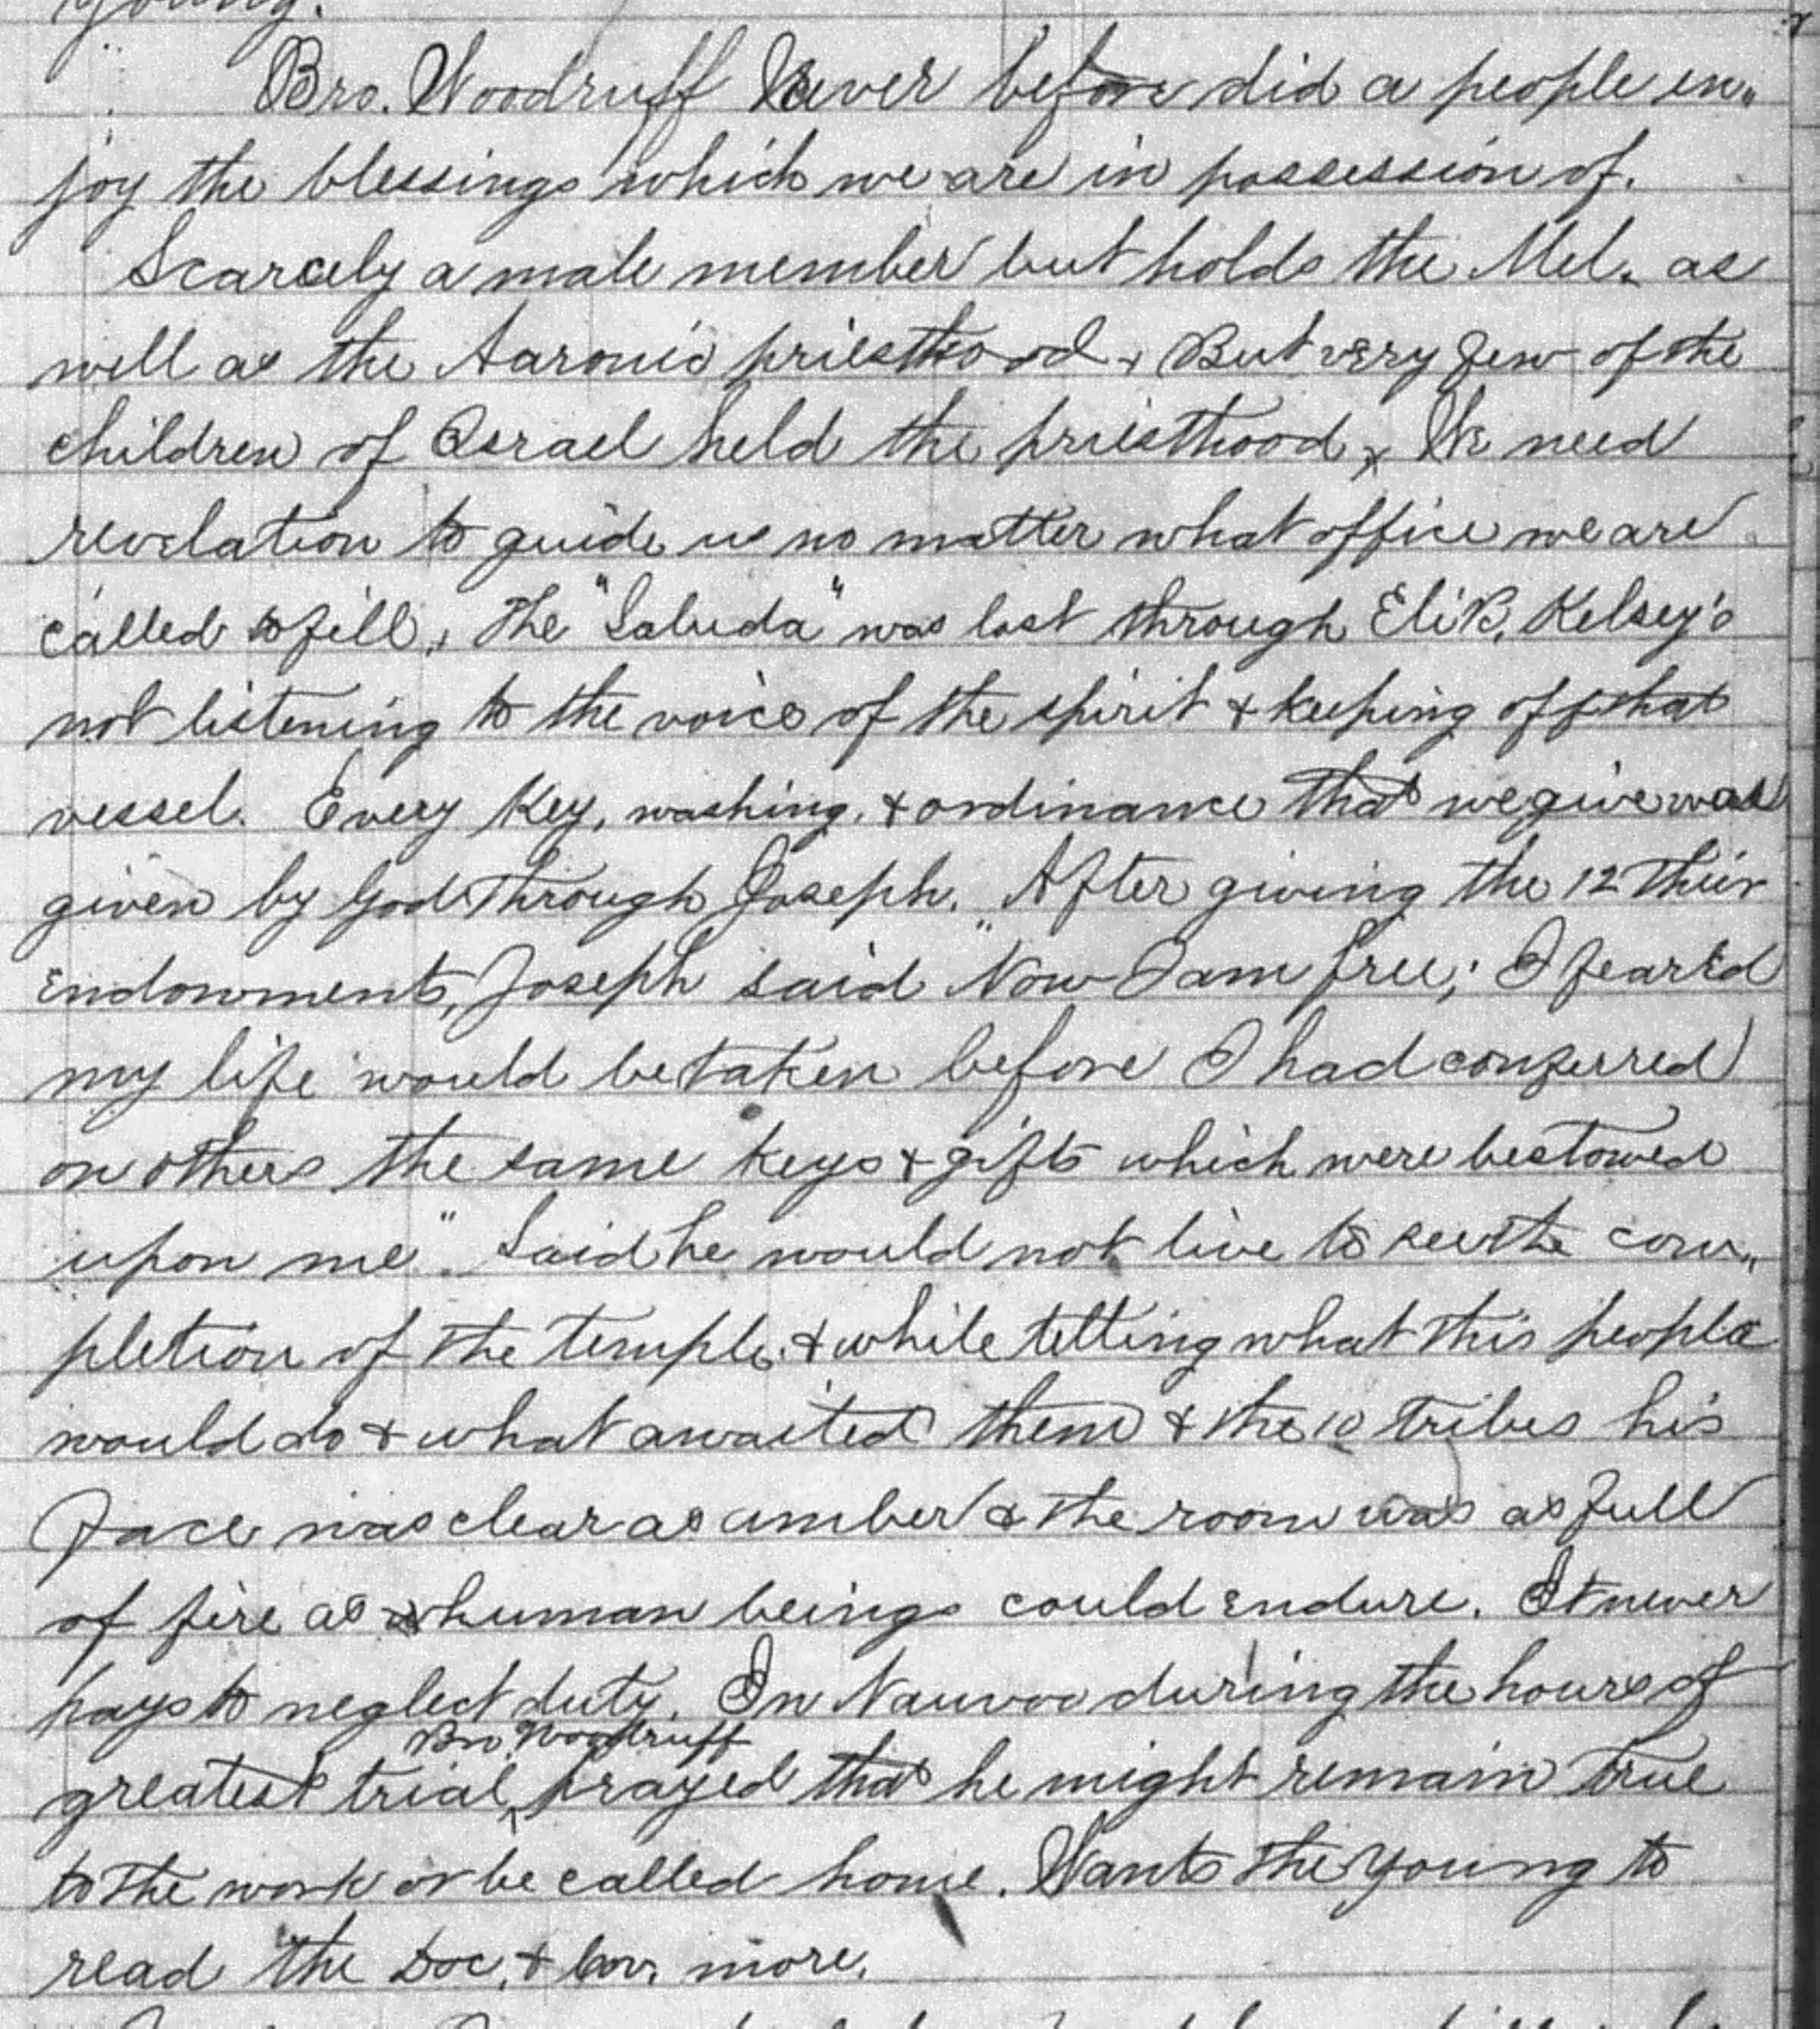 young.
Bro. Woodruff Never before did a people en„
joy the blessings which we are in possession of.
Scarcely a male member but holds the Mel. as
well as the Aaronic priesthood. But very few of the
children of Israel held the priesthood, We need
revelation to guide us no matter what office we are
called to fill, The "Saluda" was lost through Eli B. Kelsey's
not listening to the voice of the spirit & keeping off that
vessel. Every Key, washing, & ordinance that we give was
given by God through Joseph. After giving the 12 their
Endowments, Joseph said "Now I am free; I feared
my life would be taken before I had conferred
on others the same keys & gifts which were bestowed
upon me" Said he would not live to see the com„
pletion of the temple, & while telling what this people
would do & what awaited them & the 10 tribes his
face was clear as amber & the room was as full
of fire as human beings could endure. It never
pays to neglect duty. In Nauvoo during the hours of
Bro Woodruff
greatest trial ‸ prayed that he might remain true
to the work or be called home. Wants the young to
read the Doc. & Cov. more.